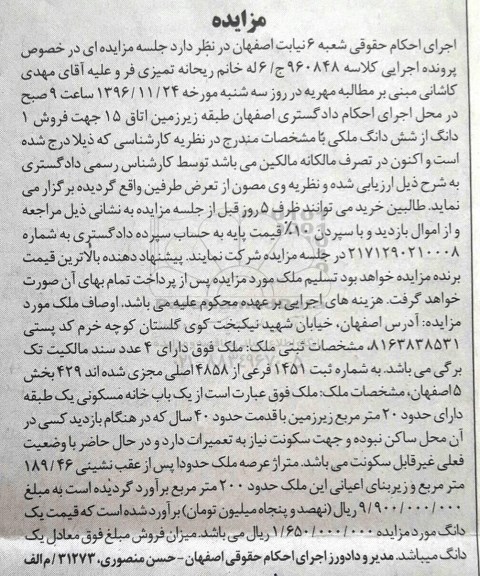 مزایده
اجرای احکام حقوقی شعبه ۶ نیابت اصفهان در نظر دارد جلسه مزایده ای در خصوص
پرونده اجرایی کلاسه ۹۶۰۸۴۸ ج/۶ له خانم ریحانه تمیزی فر و علیه آقای مهدی
کاشانی مبنی بر مطالبه مهریه در روز سه شنبه مورخه ۱۳۹۶/۱۱/۲۴ ساعت ۹ صبح
در محل اجرای احکام دادگستری اصفهان طبقه زیرزمین اتاق ۱۵ جهت فروش ۱
دانگ از شش دانگ ملکی با مشخصات مندرج در نظریه کارشناسی که ذیلا درج شده
است و اکنون در تصرف مالکانه مالکین می باشد توسط کارشناس رسمی دادگستری
به شرح ذیل ارزیابی شده و نظریه وی مصون از تعرض طرفین واقع گردیده برگزار می
نماید. طالبین خرید می توانند ظرف ۵ روز قبل از جلسه مزایده به نشانی ذیل مراجعه
و از اموال بازدید و با سپردن ۱۰٪ قیمت پایه به حساب سپرده دادگستری به شماره
۲۱۷۱۲۹۰۲۱۰۰۰۸ در جلسه مزایده شرکت نمایند. پیشنهاد دهنده بالاترین قیمت
برنده مزایده خواهد بود تسلیم ملک مورد مزایده پس از پرداخت تمام بهای آن صورت
خواهد گرفت. هزینه های اجرایی بر عهده محکوم علیه می باشد. اوصاف ملک مورد
مزایده: آدرس اصفهان، خیابان شهید نیکبخت کوی گلستان کوچه خرم کد پستی
۸۱۶۳۸۳۸۵۳۱. مشخصات ثبتی ملک: ملک فوق دارای ۴ عدد سند مالکیت تک
برگی می باشد. به شماره ثبت ۱۴۵۱ فرعی از ۴۸۵۸ اصلی مجزی شده اند ۴۲۹ بخش
۵ اصفهان، مشخصات ملک: ملک فوق عبارت است از یک باب خانه مسکونی یک طبقه
دارای حدود ۲۰ متر مربع زیرزمین با قدمت حدود ۴۰ سال که در هنگام بازدید کسی در
آن محل ساکن نبوده و جهت سکونت نیاز به تعمیرات دارد و در حال حاضر با وضعیت
فعلی غیر قابل سکونت می باشد. متراژ عرصه ملک حدودا پس از عقب نشینی ۱۸۹/۴۶
متر مربع و زیربنای اعیانی این ملک حدود ۲۰۰ متر مربع برآورد گردیده است به مبلغ
۹/۹۰۰/۰۰۰/۰۰۰ ریال (نهصد و پنجاه میلیون تومان) برآورد شده است که قیمت یک
دانگ مورد مزایده ۱/۶۵۰/۰۰۰/۰۰۰ ریال می باشد. میزان فروش مبلغ فوق معادل یک
دانگ میباشد. مدیر و دادورز اجرای احکام حقوقی اصفهان - حسن منصوری، ۳۱۲۷۳/م الف